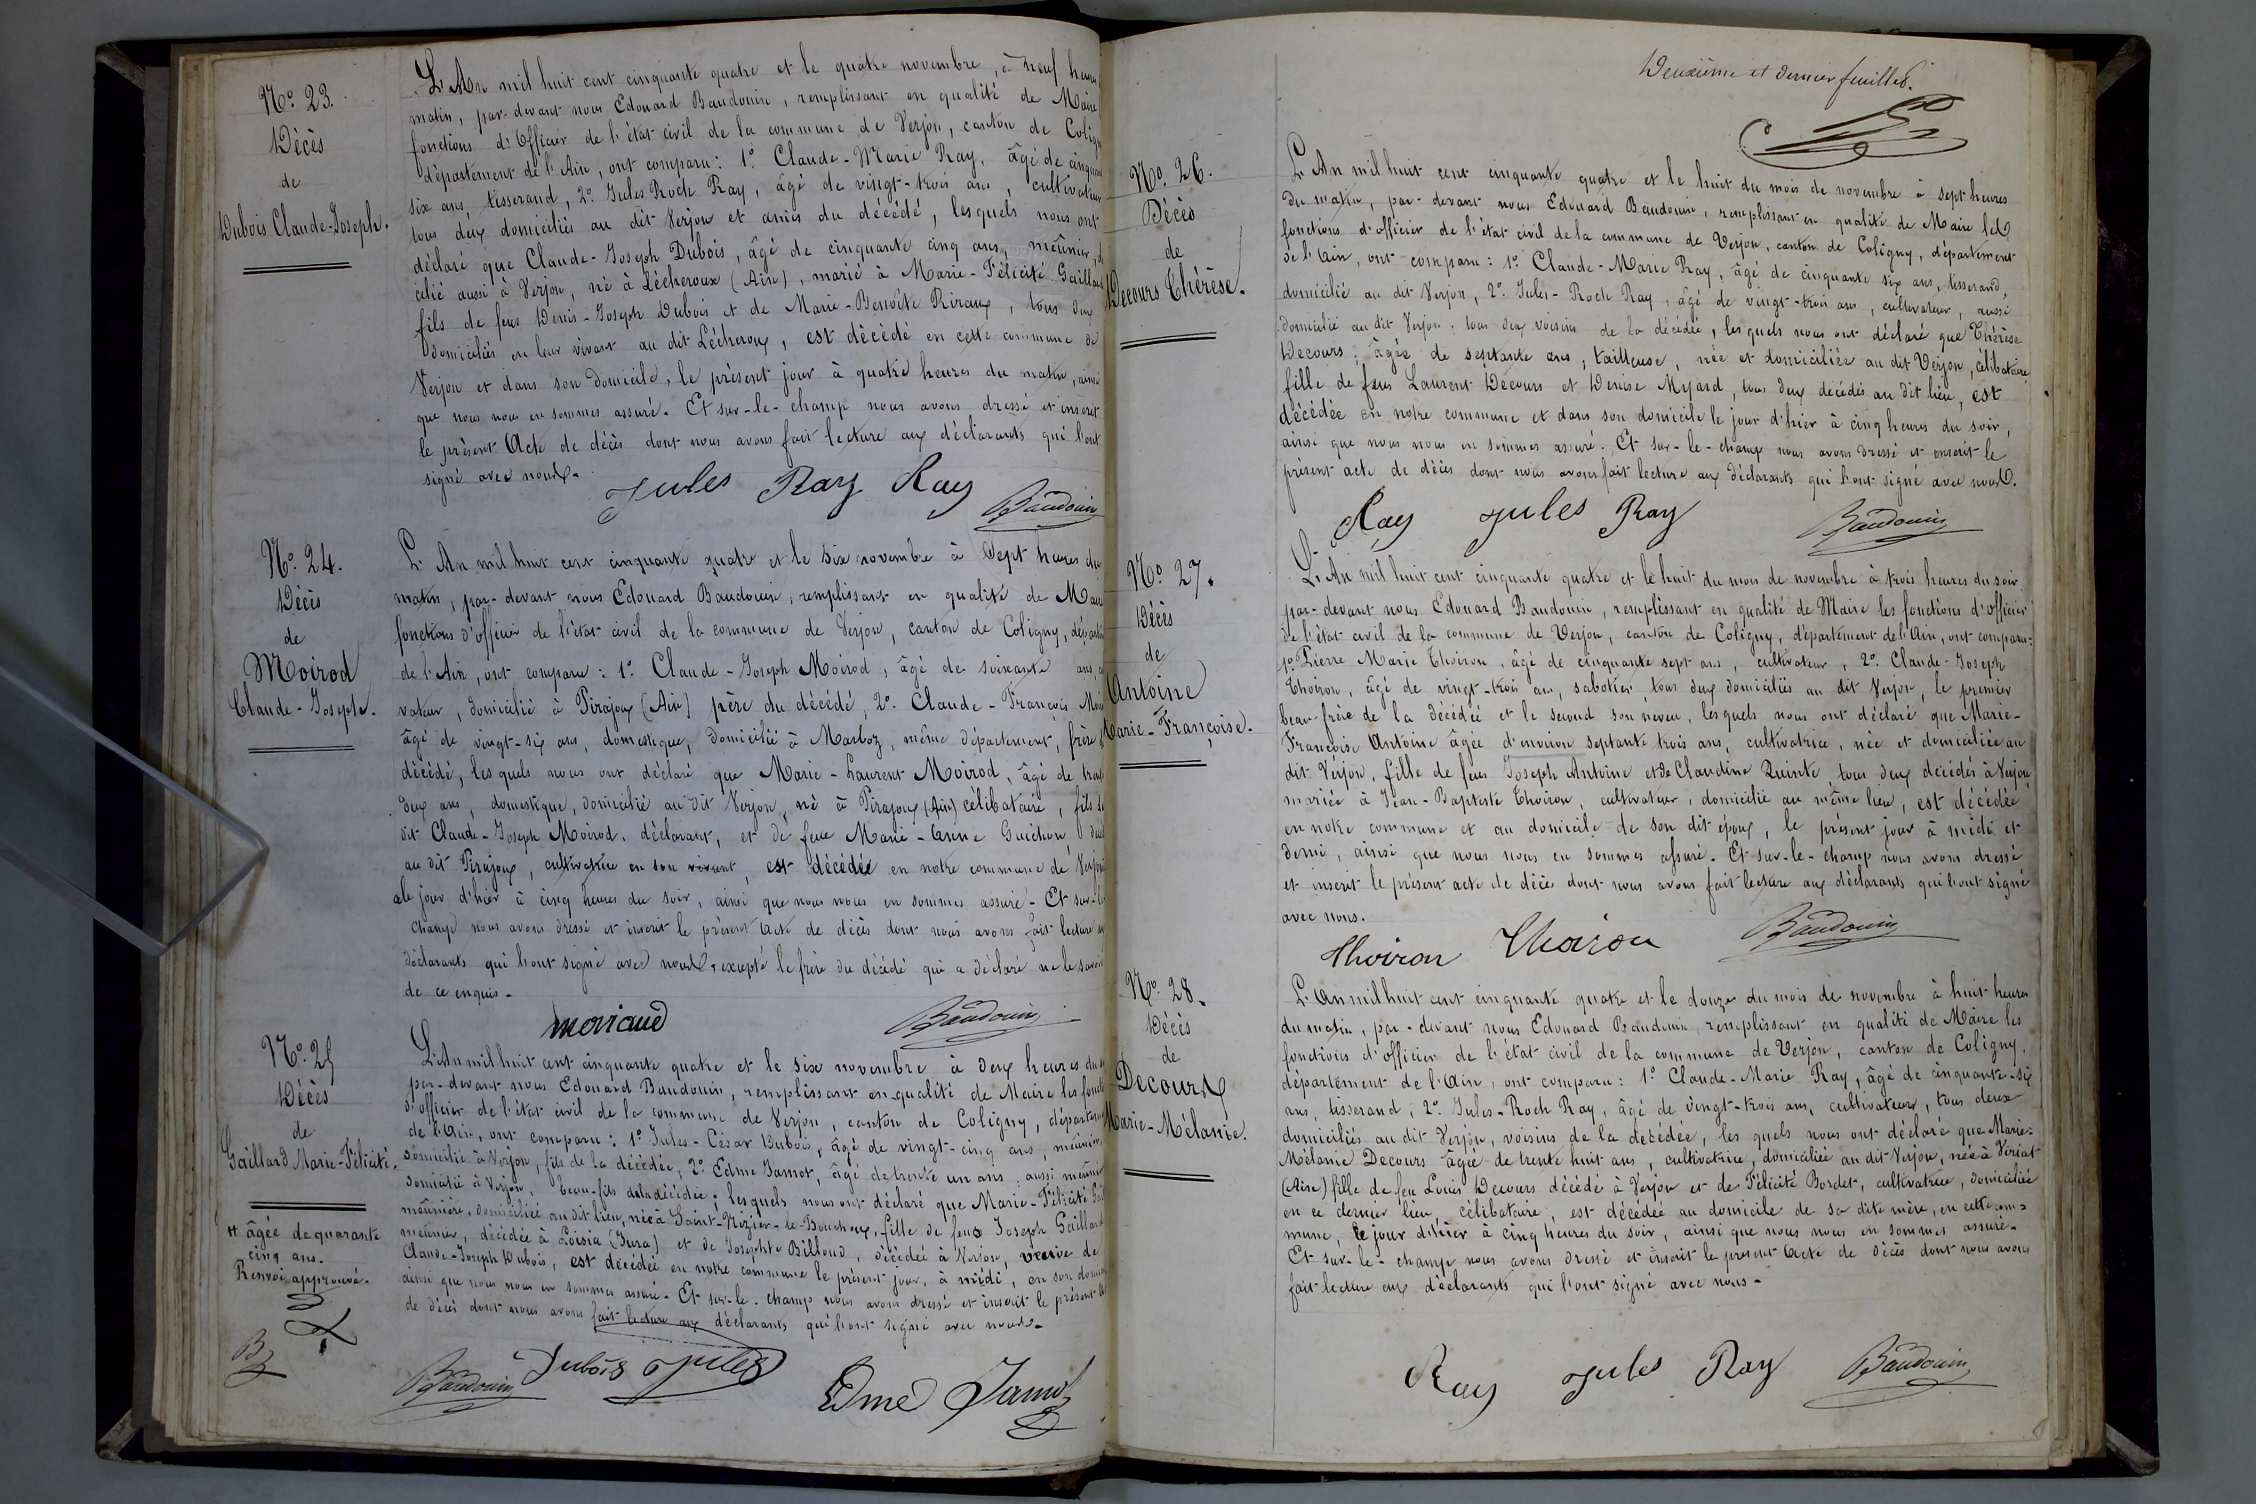 N.º 23.
Décès
de
Dubois Claude-Joseph.
L'An mil huit cent cinquante quatre et le quatre novembre, à neuf heures
matin, par-devant nous Edouard Baudouin, remplissant en qualité de Maire
fonctions d'Officier de l'état civil de la commune de Verjon, canton de Colig
département de l'Ain, ont comparu: 1.º Claude-Marie Ray, âgé de cinquant
six ans, tisserand, 2.º Jules Roch Ray, âgé de vingt-trois ans, cultivateur
tous deux domiciliés au dit Verjon et amis du décédé, lesquels nous ont
déclaré que Claude-Joseph Dubois, âgé de cinquante cinq ans, meûnier, do
cilié aussi à Verjon, né à Lécheroux (Ain), marié à Marie-Félicité Gaillard
fils de feus Denis-Joseph Dubois et de Marie-Benoîte Rivaux, tous deux
domiciliés en leur vivant au dit Lécheroux, est décédé en cette commune de
Verjon et dans son domicile, le présent jour à quatre heures du matin, ainsi
que nous nous en sommes assuré. Et sur-le-champ nous avons dressé et inscrit
le présent Acte de décès dont nous avons fait lecture aux déclarants qui l'ont
signé avec nous.
Jules Ray Ray Baudouin
N.º 24.
Décès
de
Moirod
Claude-Joseph.
L'An mil huit cent cinquante quatre et le six novembre à Sept heures du
matin, par-devant nous Edouard Baudouin, remplissant en qualité de Maire
fonctions d'officier de l'état civil de la commune de Verjon, canton de Coligny, départe
de l'Ain, ont comparu: 1.º Claude-Joseph Moirod, âgé de soixante ans, c
vateur, domicilié à Pirajoux (Ain) père du décédé, 2.º Claude-François Moi
âgé de vingt-six ans, domestique, domicilié à Marboz, même département, frère d
décédé, lesquels nous ont déclaré que Marie-Laurent Moirod, âgé de trent
deux ans, domestique, domicilié au dit Verjon, né à Pirajoux (Ain) célibataire, fils du
dit Claude-Joseph Moirod, déclarant, et de feue Marie-Anne Guichon,
au dit Pirajoux, cultivatrice en son vivant, est décédé en notre commune de Verjon
le jour d'hier à cinq heures du soir, ainsi que nous nous en sommes assuré. Et sur-le
champ nous avons dressé et inscrit le présent Acte de décès dont nous avons fait lecture
déclarants qui l'ont signé avec nous, excepté le frère du décédé qui a déclaré ne le savoir
de ce enquis.
moiraud Baudouin
N.º 25
Décès
de
Gaillard Marie-Félicité.
# âgée de quarante
cinq ans.
Renvoi approuvé.
L'An mil huit cent cinquante quatre et le six novembre à deux heures du
par-devant nous Edouard Baudouin, remplissant en qualité de Maire les fonct
d'officier de l'état civil de la commune de Verjon, canton de Coligny, départem
de l'Ain, ont comparu: 1.º Jules-César Dubois, âgé de vingt-cinq ans, meûnier
domicilié à Verjon, fils de la décédée, 2.º Edme Jannot, âgé de trente un ans, aussi meûnier
domicilié à Verjon, beau-fils de la décédée; lesquels nous ont déclaré que Marie-Félicité Gail
meûnière, domiciliée au dit lieu, née à Saint-Nizier-le-Bouchoux, fille de feus Joseph Gaillard
meûnier, décédée à Loisia (Jura) et de Josephte Billoud, décédée à Verjon, veuve de
Claude-Joseph Dubois, est décédée en notre commune le présent jour, à midi, en son domici
ainsi que nous nous en sommes assuré. Et sur-le-champ nous avons dressé et inscrit le présent
de décès dont nous avons fait lecture aux déclarants qui l'ont signé avec nous.
Baudouin Dubois Jules Edme Jannot
Deuxième et dernier feuillet.
N.º 26.
Décès
de
Decours Thérèse.
L'An mil huit cent cinquante quatre et le huit du mois de novembre à sept heures
du matin, par-devant nous Edouard Baudouin, remplissant en qualité de Maire les
fonctions d'officier de l'état civil de la commune de Verjon, canton de Coligny, département
de l'Ain, ont comparu: 1.º Claude-Marie Ray, âgé de cinquante six ans, tisserand,
domicilié au dit Verjon, 2.º Jules-Roch Ray, âgé de vingt-trois ans, cultivateur, aussi
domicilié au dit Verjon, tous deux voisins de la décédée, lesquels nous ont déclaré que Thérèse
Decours, âgée de septante ans, tailleuse, née et domiciliée au dit Verjon, célibataire
fille de feus Laurent Decours et Denise Myard, tous deux décédés au dit lieu, est
décédée en notre commune et dans son domicile le jour d'hier à cinq heures du soir,
ainsi que nous nous en sommes assuré. Et sur-le-champ nous avons dressé et inscrit le
présent acte de décès dont nous avons fait lecture aux déclarants qui l'ont signé avec nous.
Ray Jules Ray Baudouin
N.º 27.
Décès
de
Antoine
Marie-Françoise.
L'An mil huit cent cinquante quatre et le huit du mois de novembre à trois heures du soir
par-devant nous Edouard Baudouin, remplissant en qualité de Maire les fonctions d'officier
de l'état civil de la commune de Verjon, canton de Coligny, département de l'Ain, ont comparu:
1.º Pierre Marie Thoiron, âgé de cinquante sept ans, cultivateur, 2.º Claude-Joseph
Thoiron, âgé de vingt-trois ans, sabotier tous deux domiciliés au dit Verjon, le premier
beau-frère de la décédée et le second son neveu, lesquels nous ont déclaré que Marie-
Françoise Antoine âgée d'environ septante trois ans, cultivatrice, née et domiciliée au
dit Verjon, fille de feus Joseph Antoine et de Claudine Quinte, tous deux décédés à Verjon
mariée à Jean-Baptiste Thoiron, cultivateur, domicilié au même lieu, est décédée
en notre commune et au domicile de son dit époux, le présent jour à midi et
demi, ainsi que nous nous en sommes assuré. Et sur-le-champ nous avons dressé
et inscrit le présent acte de décès dont nous avons fait lecture aux déclarants qui l'ont signé
avec nous.
Thoiron Thoiron Baudouin
N.º 28.
Décès
de
Decours
Marie-Mélanie.
L'An mil huit cent cinquante quatre et le douze du mois de novembre à huit heures
du matin, par-devant nous Edouard Baudouin, remplissant en qualité de Maire les
fonctions d'officier de l'état civil de la commune de Verjon, canton de Coligny,
département de l'Ain, ont comparu: 1.º Claude-Marie Ray, âgé de cinquante-six
ans, tisserand, 2.º Jules-Roch Ray, âgé de vingt-trois ans, cultivateur, tous deux
domiciliés au dit Verjon, voisins de la décédée, lesquels nous ont déclaré que Marie-
Mélanie Decours âgée de trente huit ans, cultivatrice, domiciliée au dit Verjon, née à Viriat
(Ain) fille de feu Louis Decours décédé à Verjon et de Félicité Bordet, cultivatrice, domiciliée
en ce dernier lieu, célibataire, est décédée au domicile de sa dite mère, en cette com=
mune, le jour d'hier à cinq heures du soir, ainsi que nous nous en sommes assuré.
Et sur-le-champ nous avons dressé et inscrit le présent Acte de décès dont nous avons
fait lecture aux déclarants qui l'ont signé avec nous.
Ray Jules Ray Baudouin